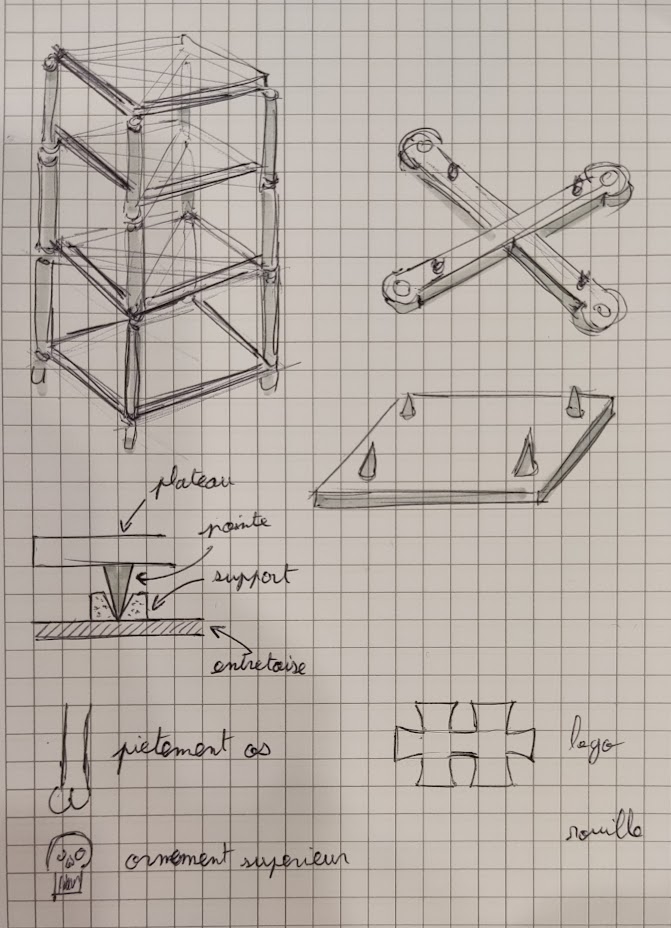 plateau
pointe
support
entretoise
piètement os
logo
rouille
ornement supérieur